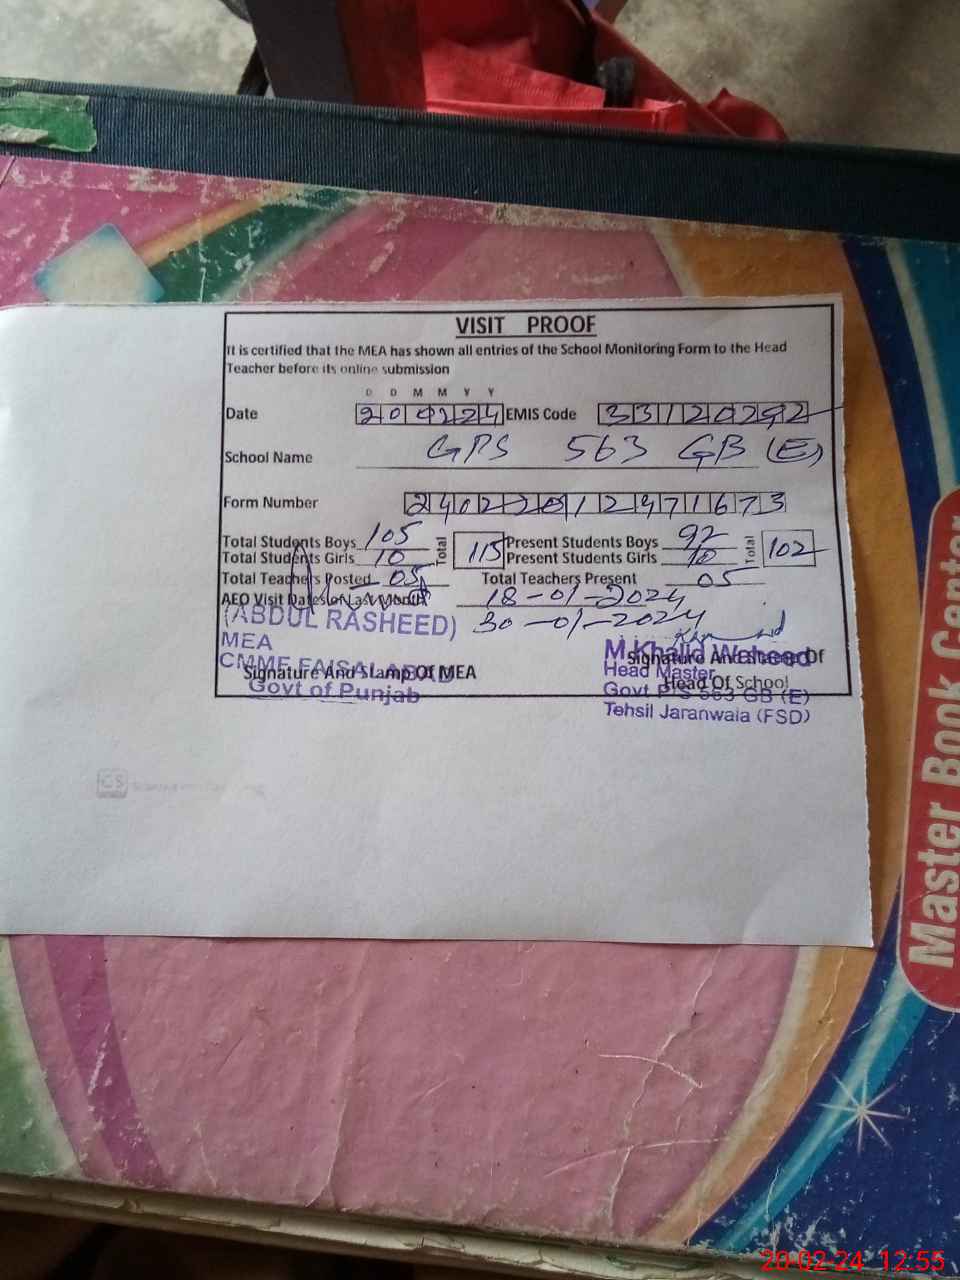 VISIT PROOF
It is certified that the MEA has shown all entries of the School Monitoring Form to the Head
Teacher before its online submission
D D M M Y Y
Date 200224 EMIS Code 33120292
School Name GPS 563 GB (E)
Form Number
Total Students Boys 105 Total 115 Present Students Boys 92 Total 102
Total Students Girls 10 Present Students Girls 10
Total Teachers Posted 05 Total Teachers Present 05
AEO Visit Dates of Last Month 18-01-2024
30-01-2024
(ABDUL RASHEED)
MEA
CMME FAISALABAD
Govt of Punjab
Signature And Stamp Of MEA
M.Khalid Waheed
Head Master
Govt P/S 563 GB (E)
Tehsil Jaranwala (FSD)
Signature And Stamp Of
Head Of School
CS
Master Book Center
20-02-24 12:55